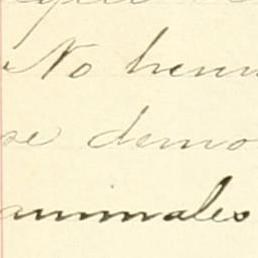 No hem
se demo
animales